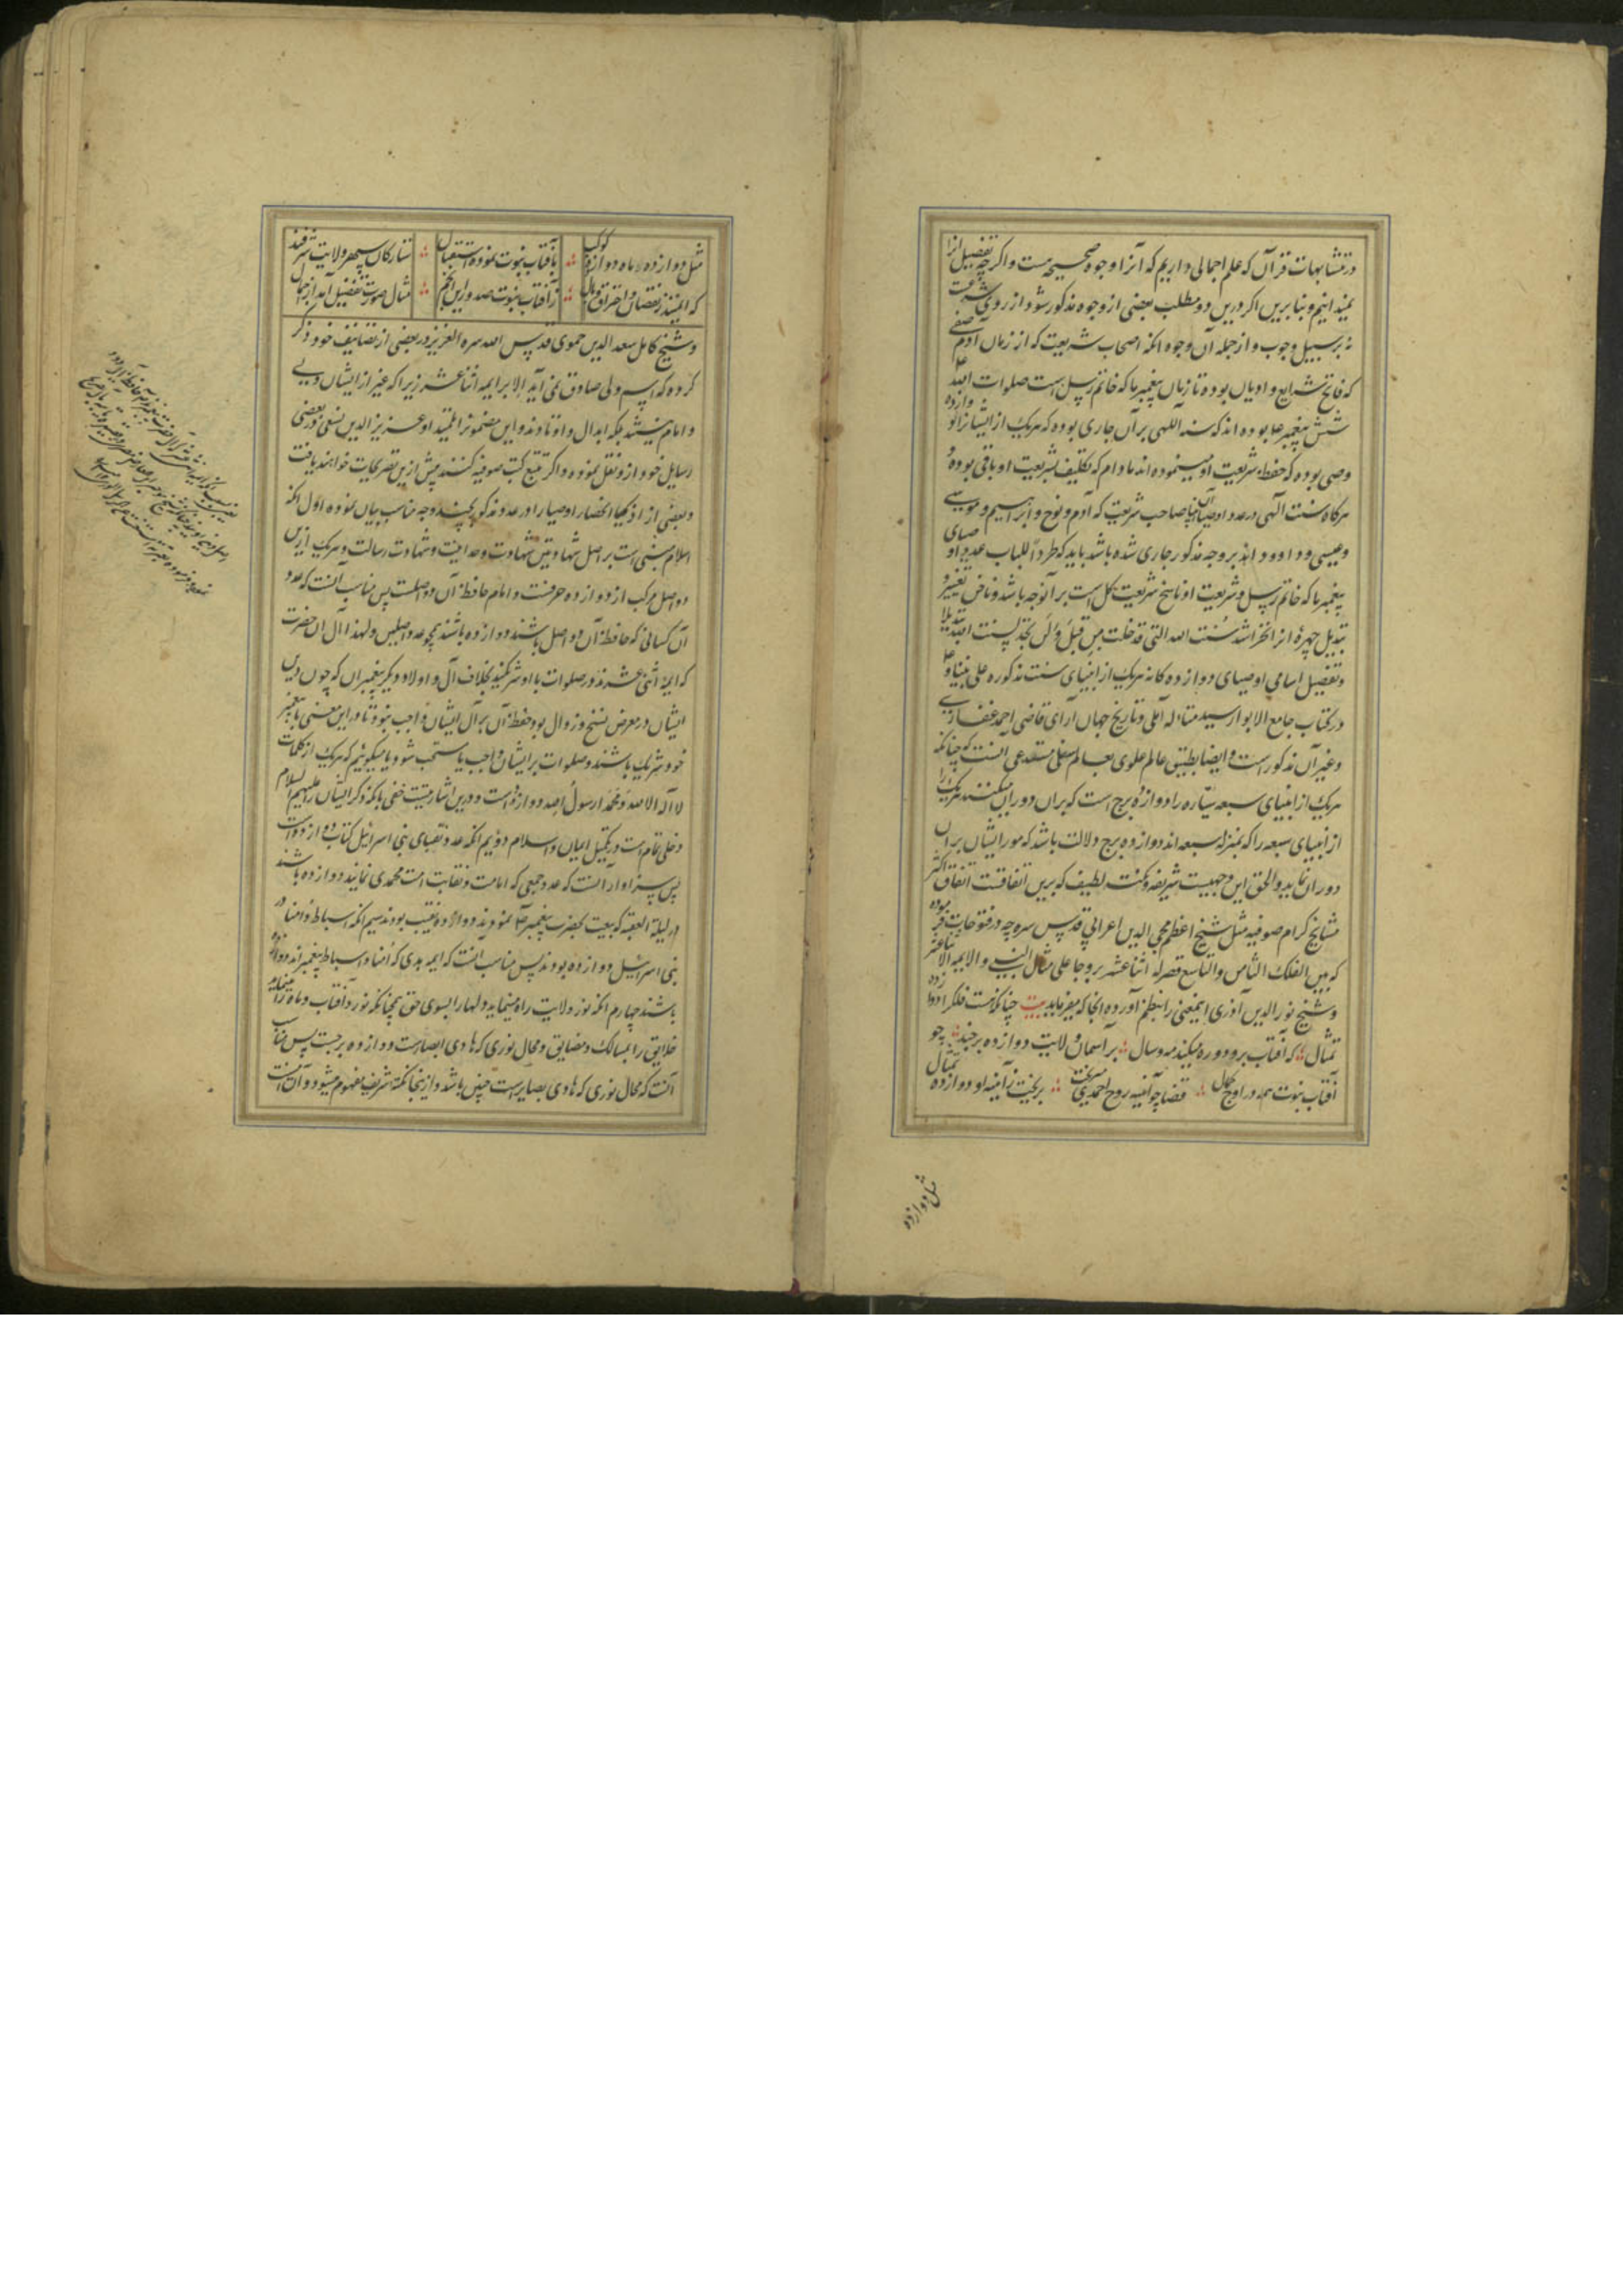 در متشابهات قرآن که علم اجمالی داریم که آنرا وجوه صحیحه هست و اگرچه تفصیل آنرا
نمیدانیم و بنابرین اگر درین دو مطلب بعضی از وجوه مذکور شود از روی
نه بر سبیل وجوب و از جمله آن وجوه آنکه اصحاب شریعت که از زمان آدم صفی
که فاتح شرایع و ادیان بوده تا زمان پیغمبر ما که خاتم رسل است صلوات الله
شش پیغمبر بوده اند که سنة اللهی بر آن جاری بوده که هر یک از ایشانرا دوازده
وصی بوده که حفظ شریعت او مینموده اند مادام که تکلیف بشریعت او باقی بوده و
هرگاه سنت آلهی در عدد اوصیای آن صاحب شریعت که آدم و نوح و ابراهیم و موسی
و عیسی و داوود اند بر وجه مذکور جاری شده باشد باید که طردا للباب عدد اوصیای
پیغمبر ما که خاتم رسل و شریعت او ناسخ شریعت کل است بر آنوجه باشد و ناخن تغییر و
تبدیل چهرهٔ آنرا نخراشد سنت الله التی قد خلت من قبل و لن تجد لسنت الله تبدیلا
و تفصیل اسامی اوصیای دوازده کانه هر یک از انبیای ستت مذکوره علی نبینا و
در کتاب جامع الابواز سید متاله آملی و تاریخ جهان آرای قاضی احمد غفاری
و غیر آن مذکور است و ایضا تطبیق عالم علوی بعالم سفلی مستدعی آنست که چنانکه
هر یک از سبعه سیاره را دوازده برج است که بران دوران میکنند هر یک را
از انبیای سبعه را که بمنزله سبعه اند دوازده برج ولایت باشد که مور ایشان بران
دوران نماید و الحق این وجهیست شریف و نکته لطیف که برین اتفاقست اتفاق اکثر
مشایخ کرام صوفیه مثل شیخ اعظم محیی الدین اعرابی قدس سره چه در فتوحات فرموده
که بین الفلک الثامن والتاسع قصر له اثنا عشر بروجا علی مثال النبی والایمه الاثنا عشر
و شیخ نور الدین آذری اینمعنی را بنظم آورده آنجا که میفرماید بیت چنانکه هست فلک را دوازده
تمثال که آفتاب برو دوره میکند مه و سال بر آسمان ولایت دوازده برجند چو
آفتاب نبوت همه در اوج کمال قضا چو آئینه روح احمدی میریخت بریخت ز آینه او دوازده تمثال
مثل دوازده
مثل دوازده ماه دوازده کوکب بآفتاب نبوت نموده استقبال ستارکان سپهر ولایت شرفند
که ایمنند ز نقصان و احتراق و وبال ز آفتاب نبوت صدور این انجم مثال صورت تفصیل آمد از اجمال
و شیخ کامل سعد الدین حموی قدس الله سره العزیز در بعضی از تصانیف خود ذکر
کرده که اسم ولی صادق نمی آید الا بر ایمه اثنا عشر زیرا که غیر از ایشان ولی
و امام نمیباشد بلکه ابدال و اوتادند و این مضمونرا تلمیذ او عزیز الدین نسفی در بعضی
رسایل خود از و نقل نموده و اگر تتبع کتب صوفیه کنند بیش ازین تصریحات خواهند یافت
و بعضی از اذکیا انحصار اوصیا را در عدد مذکور بچند وجه مناسب بیان نموده اول آنکه
اسلام مبنی است بر اصل شهادتین شهادت وحدانیت و شهادت رسالت و هر یک ازین
دو اصل مرکب از دوازده حرفست و امام حافظ آن دو اصلست پس مناسب آنست که عدد
آن کسانی که حافظ آن دو اصل باشند دوازده باشند همچو عدد اصلین و لهذا آل آن حضرت
که ایمه اثنی عشرند در صلوات با او شریکند بخلاف آل و اولاد دیگر پیغمبران که چون دین
ایشان در معرض نسخ و زوال بود حفظ آن بر آل ایشان واجب نبود تا در این معنی با پیغمبر
خود شریک باشند و صلوات بر ایشان واجب یا مستحب شود یا میگوئیم که هر یک از کلمات
لا اله الا الله و محمد رسول الله دوازده است و درین اشارتیست خفی بانکه ذکر ایشان را علیهم السلام
دخلی تمام است در تکمیل ایمان و اسلام دویم آنکه عدد نقبای بنی اسرائیل کتاب دوازده است
پس سزاوار آنست که عدد جمعی که امامت و نقابت امت محمدی نمایند دوازده باشند
در لیلة العقبه که بیعت بحضرت پیغمبر نمودند دوازده نقیب بودند سیم آنکه اسباط و امنا در
بنی اسرائیل دوازده بودند پس مناسب آنست که ایمه هدی که امنا و اسباط پیغمبراند دوازده
باشند چهارم آنکه نور ولایت راه مینماید دلها را بسوی حق همچنانکه نور آفتاب و ماه راه مینماید
خلایق را بمسالک و مضایق و محال نوری که هادی ابصارست دوازده برجست پس مناسب
آنست که محال نوری که هادی بصایر است چنین باشد و ازینجا نکته شریف مفهوم میشود و آن آنست